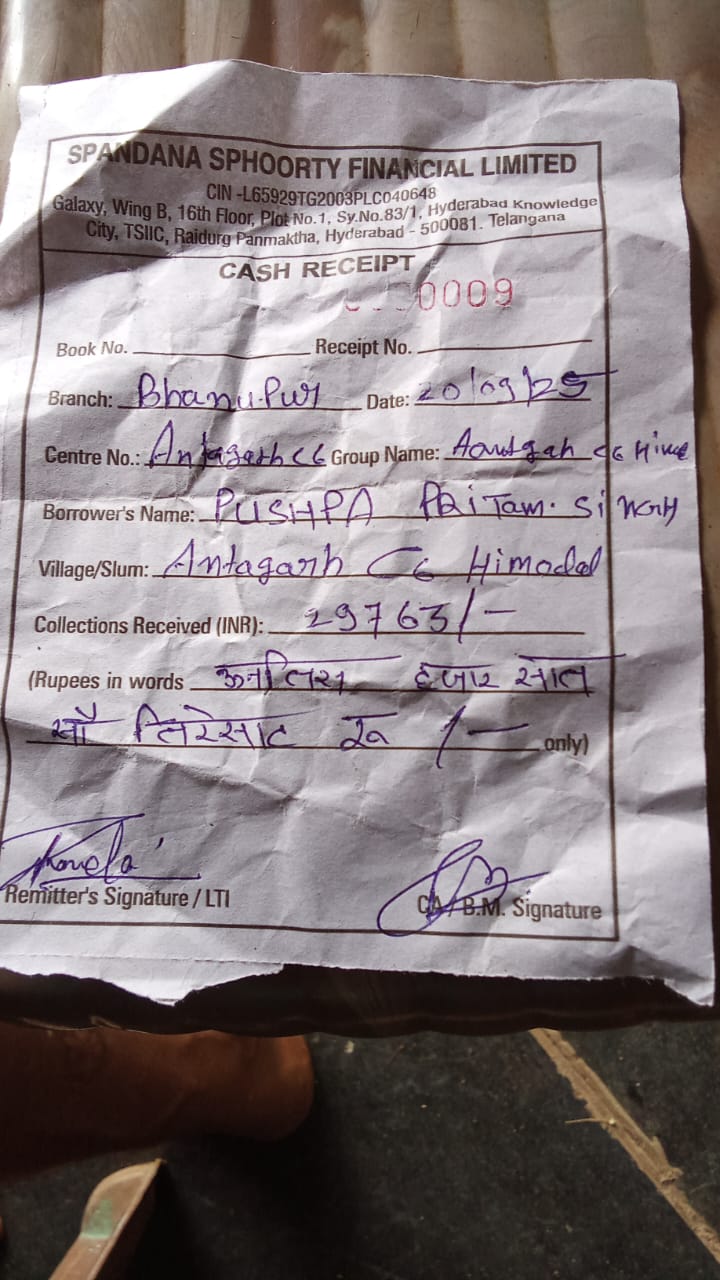 SPANDANA SPHOORTY FINANCIAL LIMITED
CIN -L65929TG2003PLC040648
Galaxy, Wing B, 16th Floor, Plot No.1, Sy.No.83/1, Hyderabad Knowledge
City, TSIIC, Raidurg Panmaktha, Hyderabad - 500081. Telangana
CASH RECEIPT
0009
Book No. Receipt No.
Branch: Bhanupur Date: 20/09/25
Centre No.: Antagarh C6 Group Name: C6
Borrower's Name: PUSHPA PRiTam. SiNGH
Village/Slum: Antagarh C6 Himodal
Collections Received (INR): 29763/-
(Rupees in words हजार सात
सौ तिरेसाट रु /- only)
Remitter's Signature / LTI
CA / B.M. Signature